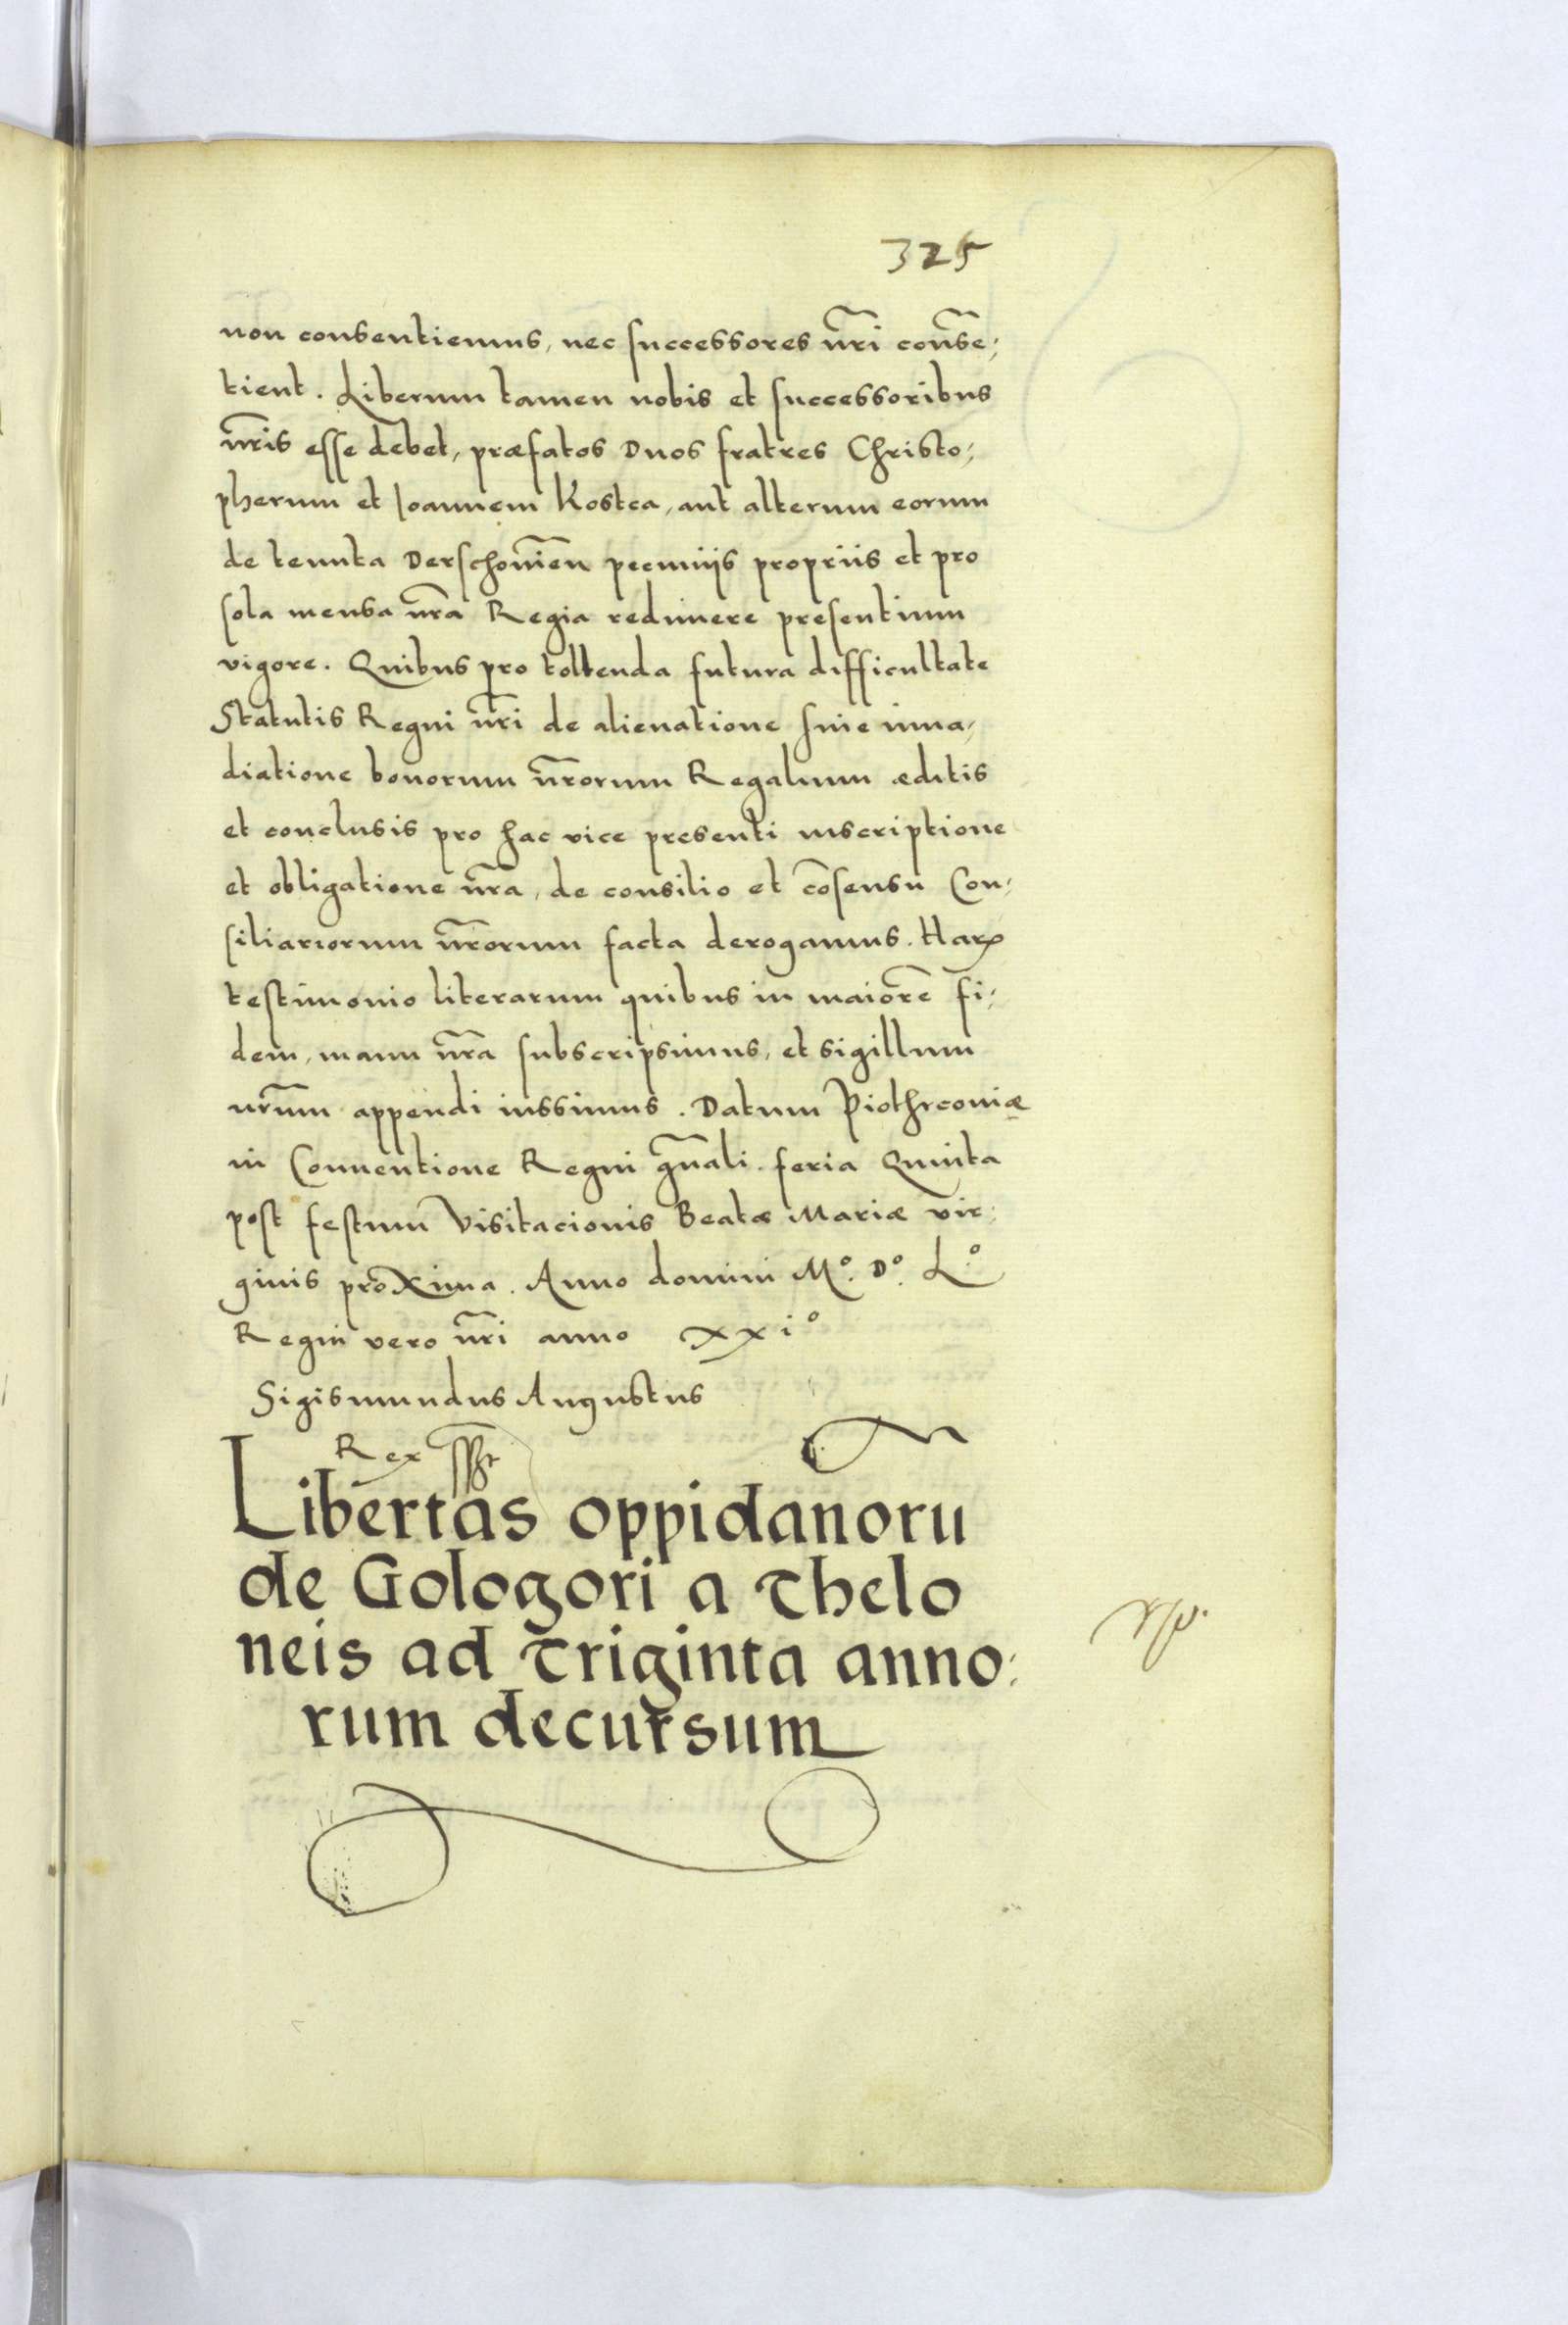 325
non consentiemus, nec successores nr̃i consẽ:
tient. Liberum tamen nobis et successoribus
nr̃is esse debet, præfatos duos fratres Christo:
pherum et Joannem Kostca, aut alterum eorum
de tenuta Derschovieñ pecunijs propriis et pro
sola mensa nr̃a Regia redimere presentium
vigore. Quibus pro tollenda futura difficultate
Statutis Regni nr̃i de alienatione sine inva:
diatione bonorum nr̃orum Regalium æditis
et conclusis pro hac vice presenti inscriptione
et obligatione nr̃a, de consilio et cõsensu Con:
siliariorum nr̃orum facta derogamus. Harꝝ
testimonio literarum quibus in maiorẽ fi:
dem, manu nr̃a subscripsimus, et sigillum
nr̃um appendi iussimus. Datum Piothrcoviæ
in Conventione Regni gñali. feria Quinta
post festum Visitacionis Beatæ Mariæ vir:
ginis proxima. Anno domini Mº. Dº. Lº
Regni vero nr̃i anno xxiº
Sigismundus Augustus
Rex
Libertas oppidanoru
de Gologori a Thelo
neis ad Triginta anno:
rum decursum